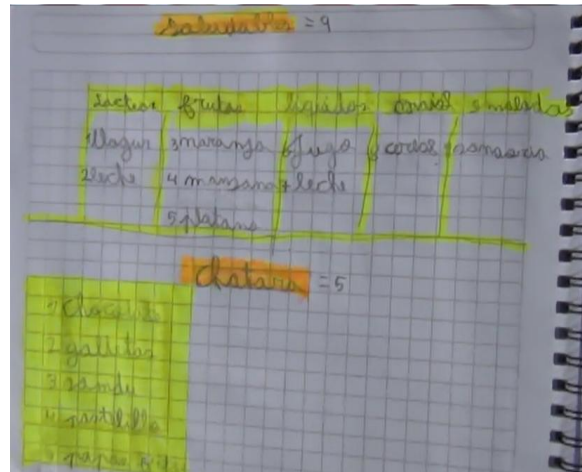 Saludables = 9
Lacteos frutas liquidos cereal enseladas
1 Yogur 3 naranja 6 Jugo 8 cereal 9 sanaoria
2 leche 4 manzana 7 leche
5 platano
Chatara = 5
1 chocolate
2 galletas
3 sandu
4 pastelillo
5 papas